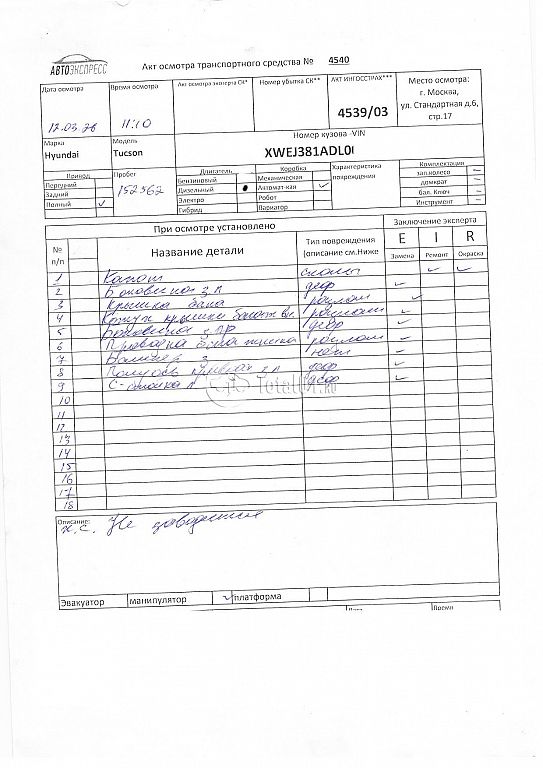 АВТОЭКСПРЕСС
Акт осмотра транспортного средства № 4540
Дата осмотра
12.03.26
Время осмотра
11:10
Акт осмотра эксперта СК*
Номер убытка СК**
АКТ ИНГОССТРАХ***
4539/03
Место осмотра:
г. Москва,
ул. Стандартная д.6,
стр.17
Марка
Hyundai
Модель
Tucson
Номер кузова -VIN
XWEJ381ADL0I
Привод
Передний
Задний
Полный
Пробег
152362
Двигатель
Бензиновый
Дизельный
Электро
Гибрид
Коробка
Механическая
Автомат-кая
Робот
Вариатор
Характеристика
повреждения
Комплектация
зап.колесо
домкрат
бал. Ключ
Инструмент
При осмотре установлено
Заключение эксперта
№
п/п
Название детали
Тип повреждения
(описание см.Ниже
E I R
Замена Ремонт Окраска
1 Капот сколы
2 Боковина з л деф
3 Крышка разлом
4 Кожух крышки
5 Боковина деф
6 разлом
7
8 деф
9 С-стойка л деф
TotalCar.RU
10
11
12
13
14
15
16
17
18
Описание:
Не заводится
Эвакуатор
манипулятор
платформа
Дата
Время